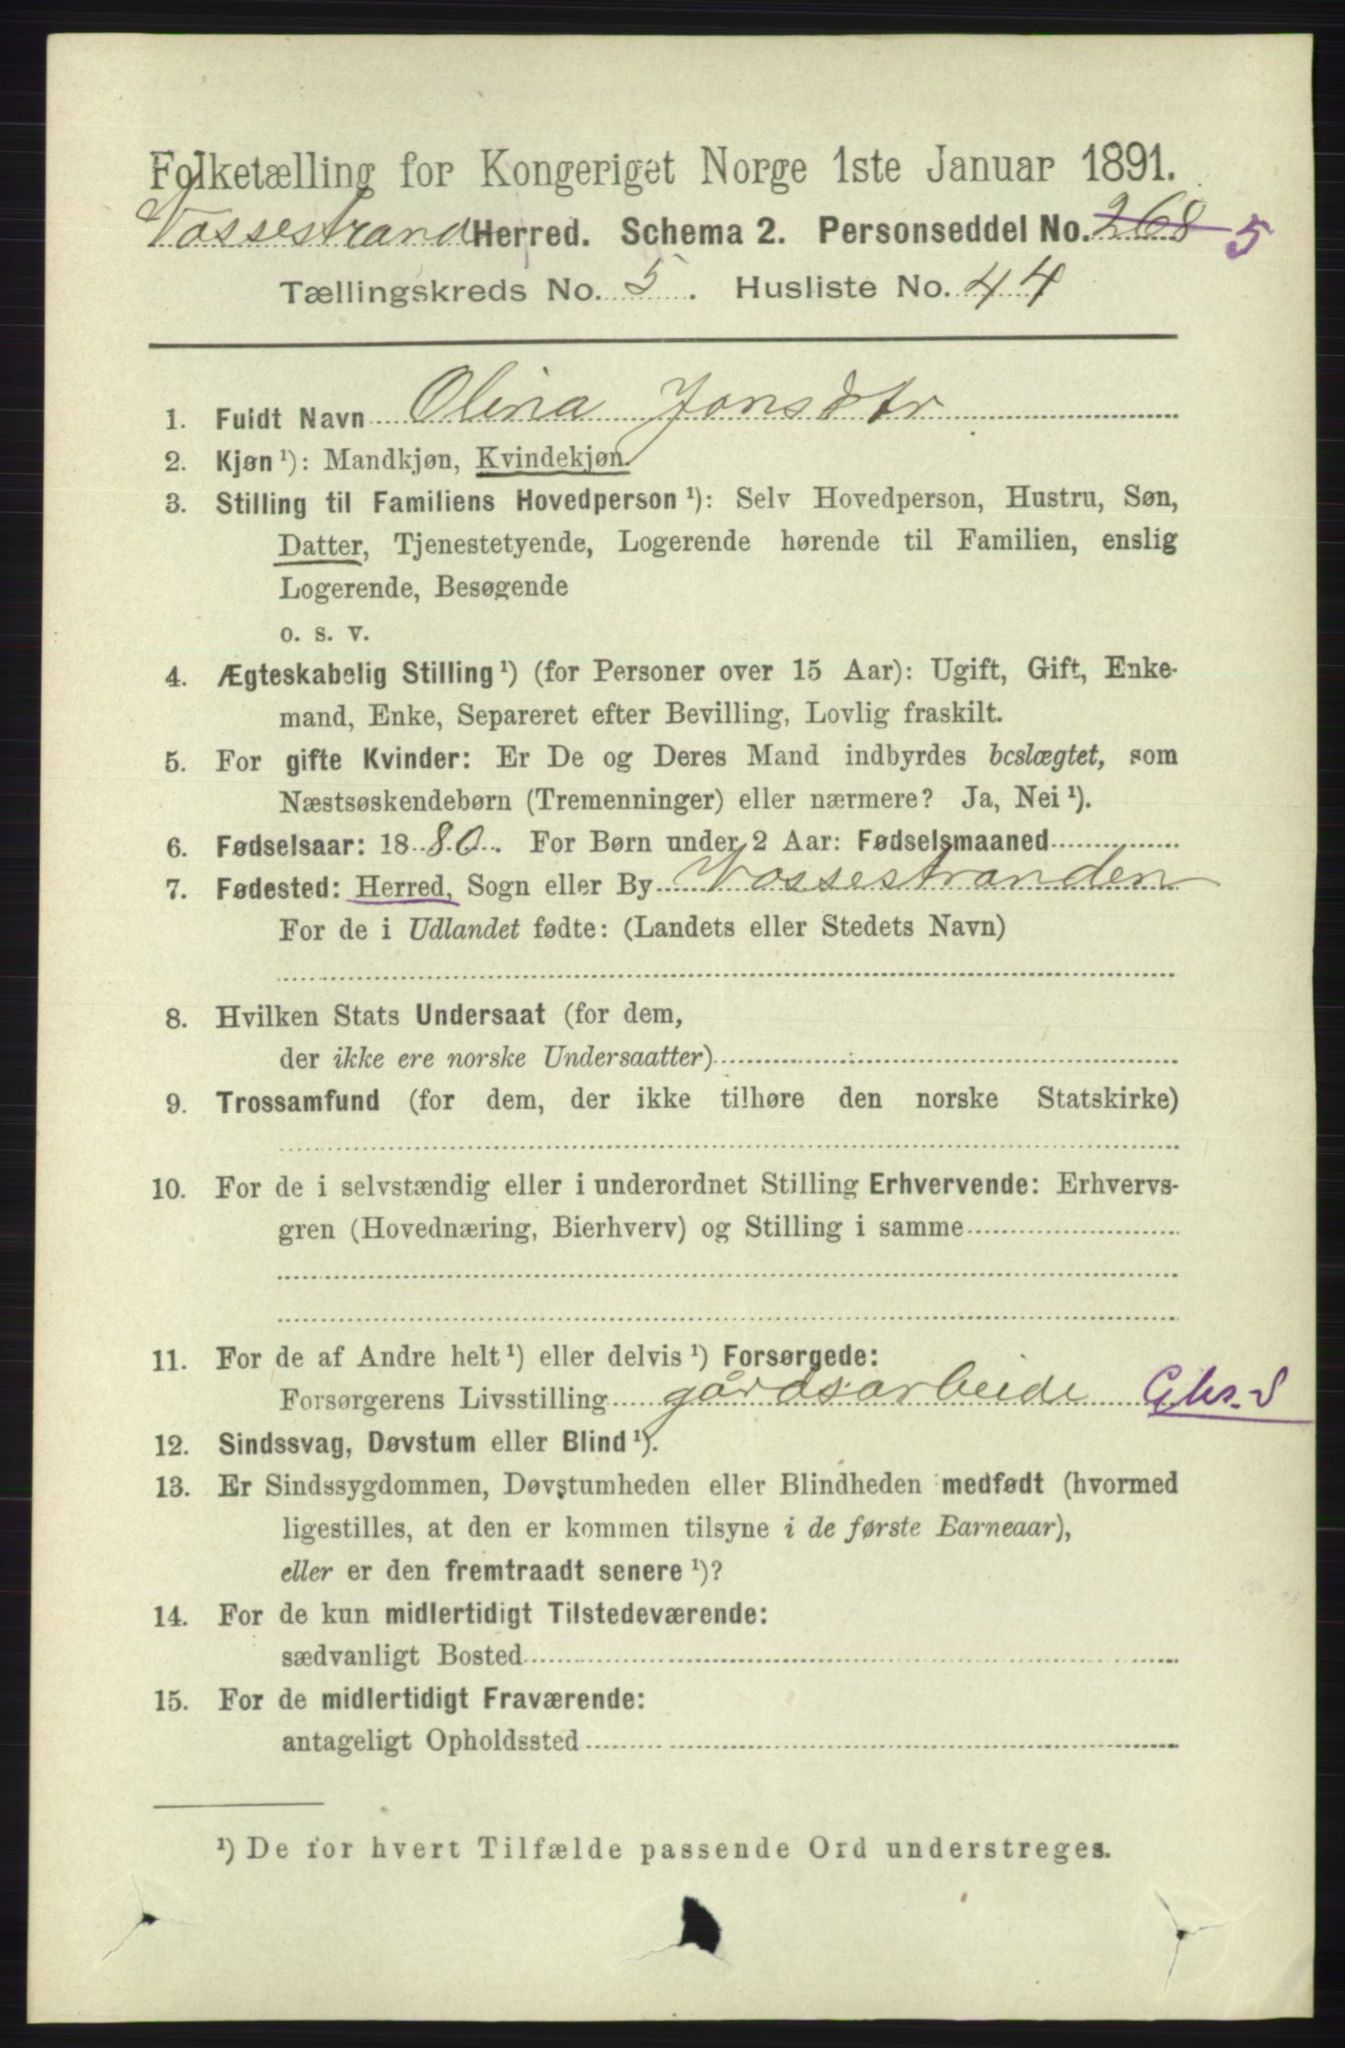 Folketælling for Kongeriget Norge 1ste Januar 1891.
Vossestrand Herred. Schema 2. Personseddel No. 268 5
Tællingskreds No. 5. Husliste No. 44
1. Fuldt Navn Olina Jonsdtr
2. Kjøn ¹): Mandkjøn, Kvindekjøn.
3. Stilling til Familiens Hovedperson ¹): Selv Hovedperson, Hustru, Søn,
Datter, Tjenestetyende, Logerende hørende til Familien, enslig
Logerende, Besøgende
o. s. v.
4. Ægteskabelig Stilling ¹) (for Personer over 15 Aar): Ugift, Gift, Enke-
mand, Enke, Separeret efter Bevilling, Lovlig fraskilt.
5. For gifte Kvinder: Er De og Deres Mand indbyrdes beslægtet, som
Næstsøskendebørn (Tremenninger) eller nærmere? Ja, Nei ¹).
6. Fødselsaar: 1880. For Børn under 2 Aar: Fødselsmaaned
7. Fødested: Herred, Sogn eller By Vossestranden
For de i Udlandet fødte: (Landets eller Stedets Navn)
8. Hvilken Stats Undersaat (for dem,
der ikke ere norske Undersaatter)
9. Trossamfund (for dem, der ikke tilhøre den norske Statskirke)
10. For de i selvstændig eller i underordnet Stilling Erhvervende: Erhvervs-
gren (Hovednæring, Bierhverv) og Stilling i samme
11. For de af Andre helt ¹) eller delvis ¹) Forsørgede:
Forsørgerens Livsstilling gårdsarbeide
12. Sindssvag, Døvstum eller Blind ¹).
13. Er Sindssygdommen, Døvstumheden eller Blindheden medfødt (hvormed
ligestilles, at den er kommen tilsyne i de første Barneaar),
eller er den fremtraadt senere ¹)?
14. For de kun midlertidigt Tilstedeværende:
sædvanligt Bosted
15. For de midlertidigt Fraværende:
antageligt Opholdssted
¹) De for hvert Tilfælde passende Ord understreges.